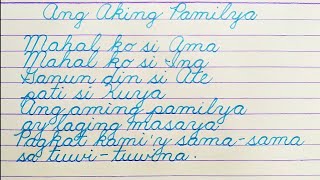 Ang Aking Pamilya
Mahal ko si Ama
Mahal ko si Ina
Ganun din si Ate
pati si Kuya
Ang aming pamilya
ay laging masaya
Pagkat kami'y sama-sama
sa tuwi-tuwina.